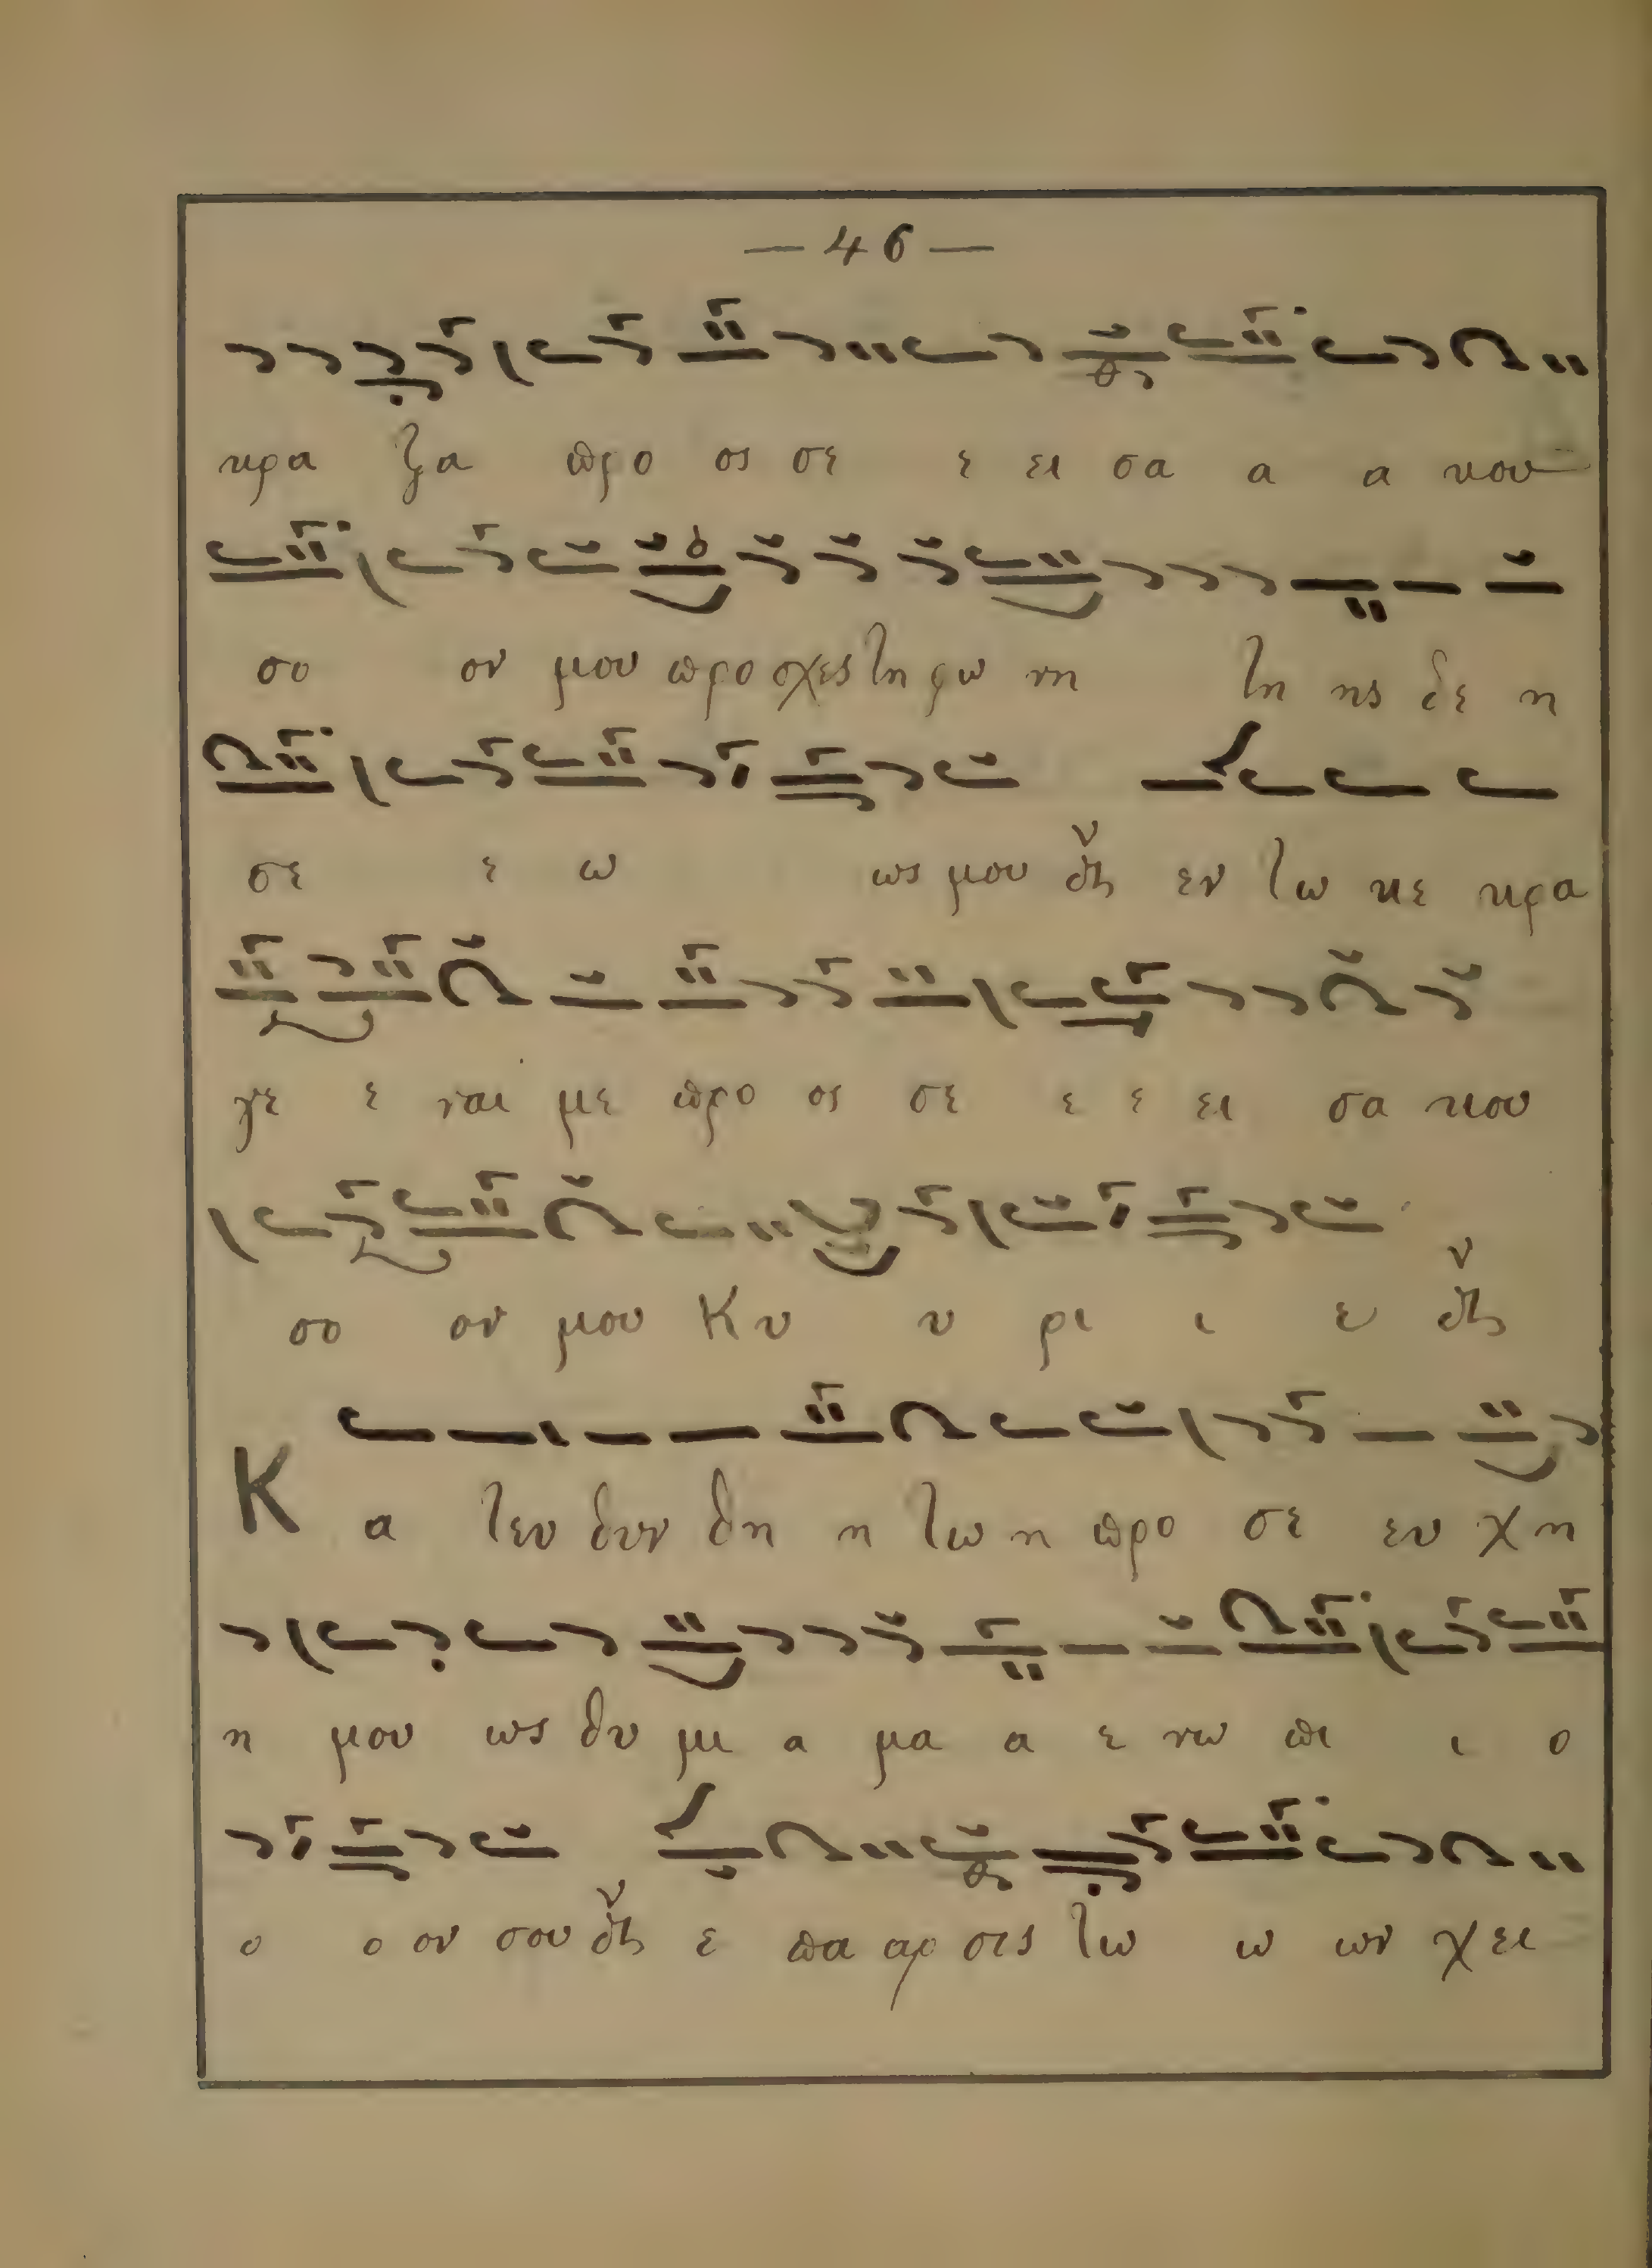 — 46 —
κρα ζα προ ος σε ε ει σα α α κου
σο ον μου προ σχες τη φω νη τη ης δε η
σε ε ω ως μου εν τω κε κρα
γε ε ναι με προ ος σε ε ε ει σα κου
σο ον μου Κυ υ ρι ι ε
Κ α τευ θυν θη η τω η προ σε ευ χη
η μου ως θυ μι α μα α ε νω πι ι ο
ο ο ον σου ε πα αρ σις τω ω ων χει